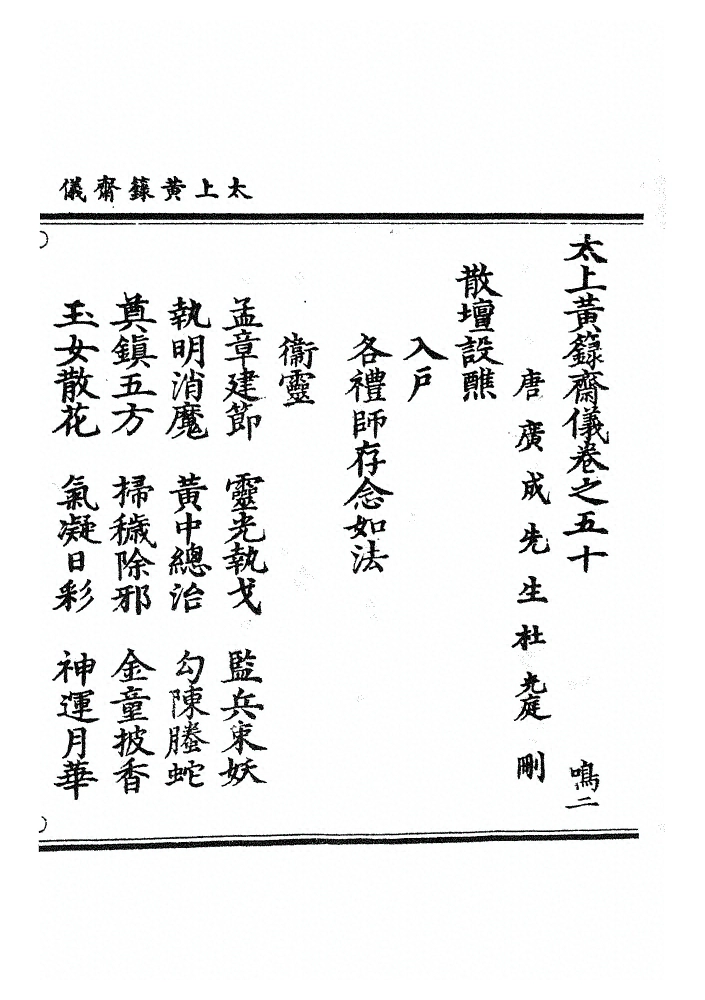 太上黃籙齋儀
太上黃籙齋儀卷之五十　鳴二
唐廣成先生杜光庭刪
散壇設醮
入戶
各禮師存念如法
衞靈
孟章建節　靈光執戈　監兵束妖
執明消魔　黃中總治　勾陳螣蛇
奠鎮五方　掃穢除邪　金童披香
玉女散花　氣凝日彩　神運月華